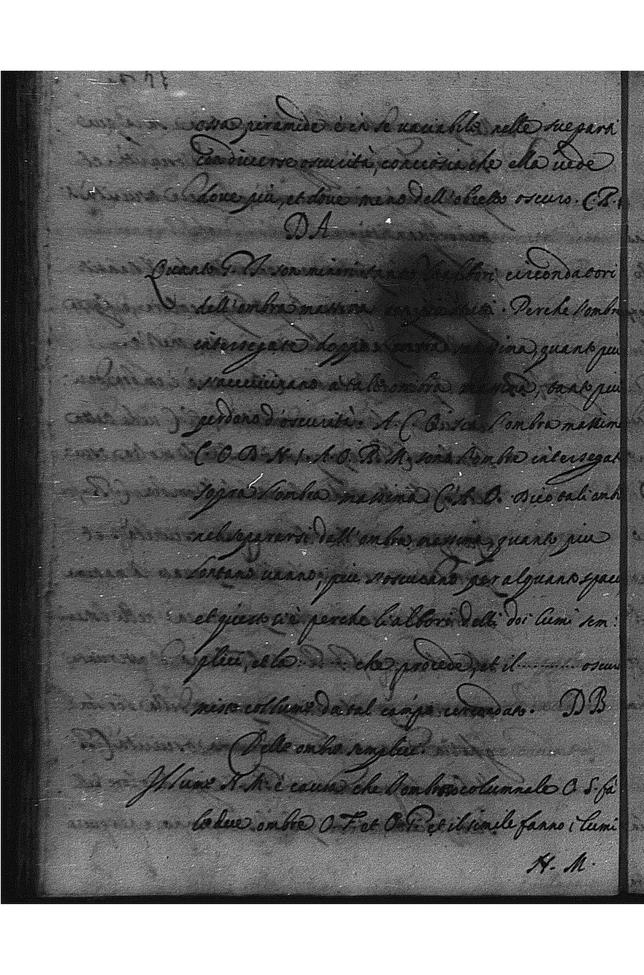 essa piramide è in se variabile nelle sue parti
con diverse oscurità, conciosia che ella vede
dove più, et dove meno dell'obietto oscuro. C. R.
DA
Quanto son minori tanto circondatori
dell'ombra massima Perche l'ombre
intersegate doppie quanto più
s'avvicinano a tale ombra massima, tanto più
perdono d'oscurità. A. C. l'ombra massima
C. O. B. N. A. O. R. M. sono l'ombre intersegate
sopra l'ombra massima C. A. O. dico tali omb
nel separarsi dall'ombra massima, quanto più
lontano vanno, più s'oscurano per alquanto spacio
et questo si è perche li albori delli doi lumi sem:
plici, et la ........ che procede, et il .......... oscuro
misto coll lume da tal campo circondato. DB
Delle ombre semplici.
Il lume N. M. è causa che l'ombroso colunnale O. S. fa
le due ombre O. T. et O. et il simile fanno i lumi
N. M.